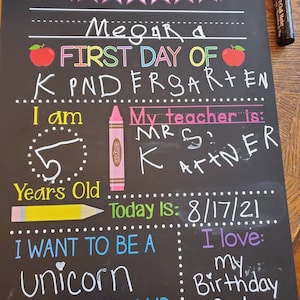 Megan
FIRST DAY OF
KINDERGARTEN
I am
My teacher is:
5
MRS.
KARTNER
Years Old
Today is: 8/17/21
I WANT TO BE A
I love:
unicorn
my
Birthday